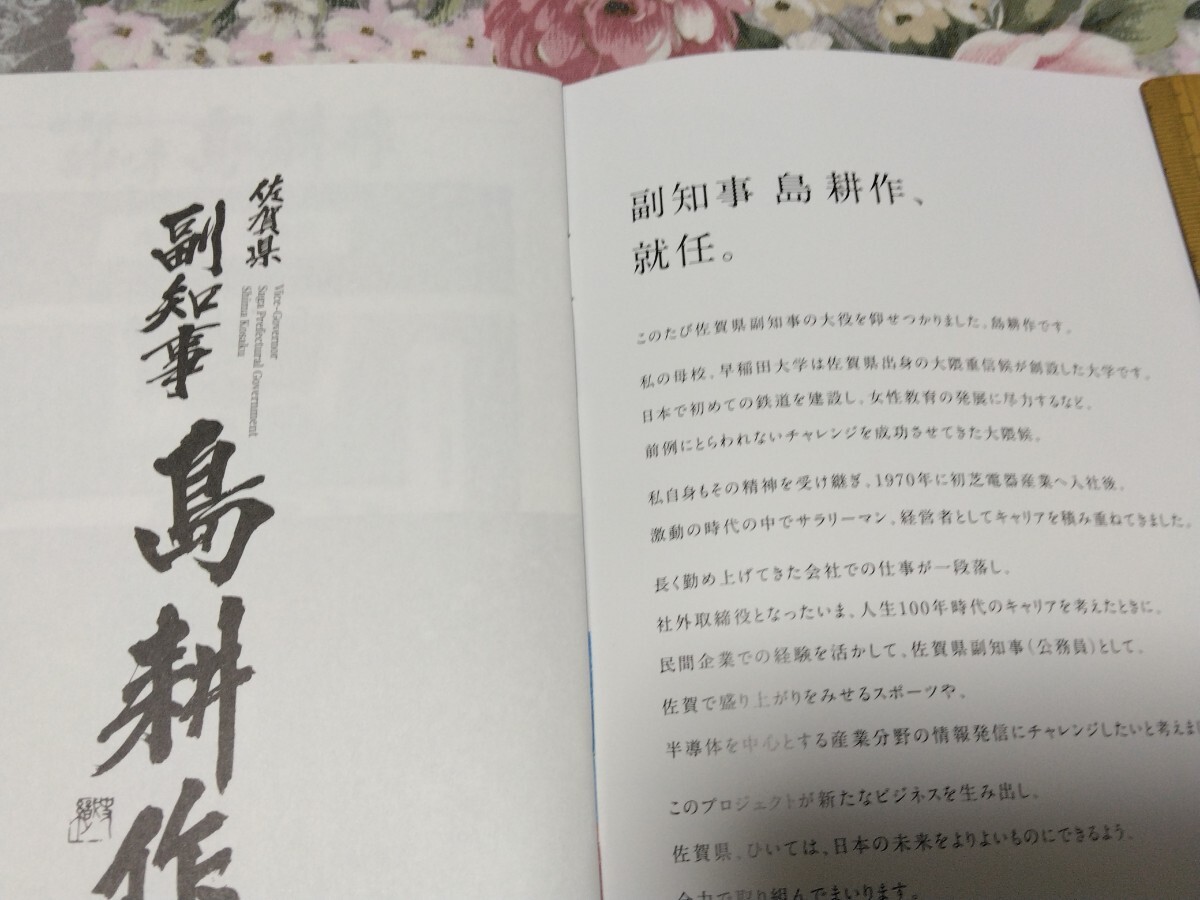 佐賀県
副知事
島耕作
Vice-Governor
Saga Prefectural Government
Shima Kosaku
副知事 島 耕作、
就任。
このたび佐賀県副知事の大役を仰せつかりました、島耕作です。
私の母校、早稲田大学は佐賀県出身の大隈重信候が創設した大学です。
日本で初めての鉄道を建設し、女性教育の発展に尽力するなど、
前例にとらわれないチャレンジを成功させてきた大隈候。
私自身もその精神を受け継ぎ、1970年に初芝電器産業へ入社後、
激動の時代の中でサラリーマン、経営者としてキャリアを積み重ねてきました。
長く勤め上げてきた会社での仕事が一段落し、
社外取締役となったいま、人生100年時代のキャリアを考えたときに、
民間企業での経験を活かして、佐賀県副知事(公務員)として、
佐賀で盛り上がりをみせるスポーツや、
半導体を中心とする産業分野の情報発信にチャレンジしたいと考えま
このプロジェクトが新たなビジネスを生み出し、
佐賀県、ひいては、日本の未来をよりよいものにできるよう、
全力で取り組んでまいります。